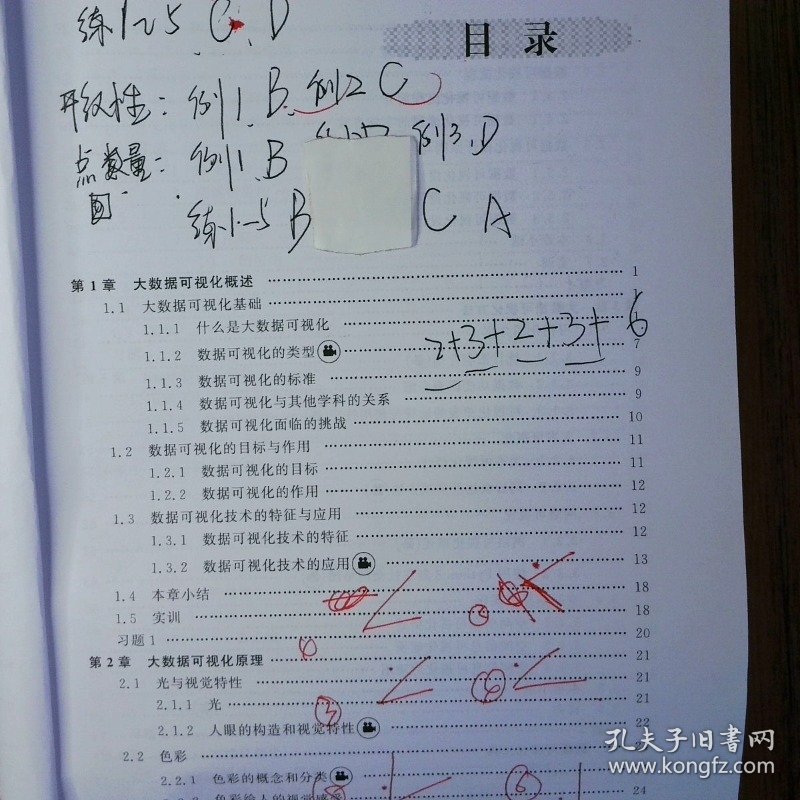 练1~5 C、D
目 录
开放性：例1、B、例2 C
点数量：例1、B 例3、D
面
练1-5 B C A
第1章 大数据可视化概述 1
1.1 大数据可视化基础 1
1.1.1 什么是大数据可视化
2+3+2+3+6
1.1.2 数据可视化的类型 7
1.1.3 数据可视化的标准 9
1.1.4 数据可视化与其他学科的关系 9
1.1.5 数据可视化面临的挑战 10
1.2 数据可视化的目标与作用 11
1.2.1 数据可视化的目标 11
1.2.2 数据可视化的作用 12
1.3 数据可视化技术的特征与应用 12
1.3.1 数据可视化技术的特征 12
1.3.2 数据可视化技术的应用 13
1.4 本章小结 18
1.5 实训 18
习题1 20
第2章 大数据可视化原理 21
2.1 光与视觉特性 21
2.1.1 光 21
2.1.2 人眼的构造和视觉特性 22
2.2 色彩
2.2.1 色彩的概念和分类 24
色彩给人的视觉感受
孔夫子旧书网
www.kongfz.com